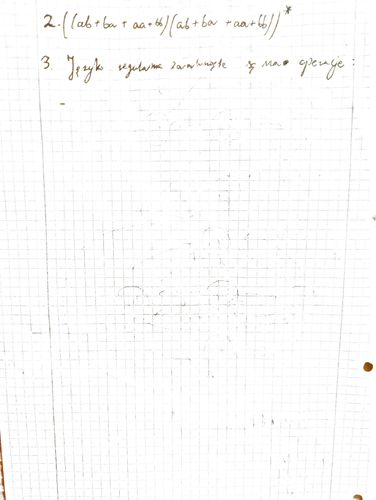 2. ((ab+ba+aa+bb)(ab+ba+aa+bb))*
3. Języki regularne zamknięte są na operacje:
-